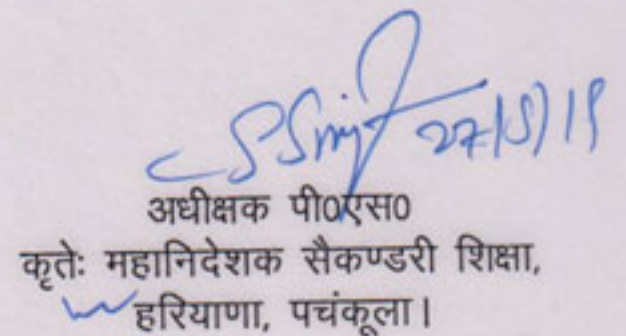 27/5/19
अधीक्षक पी०एस०
कृतेः महानिदेशक सैकण्डरी शिक्षा,
हरियाणा, पचंकूला।